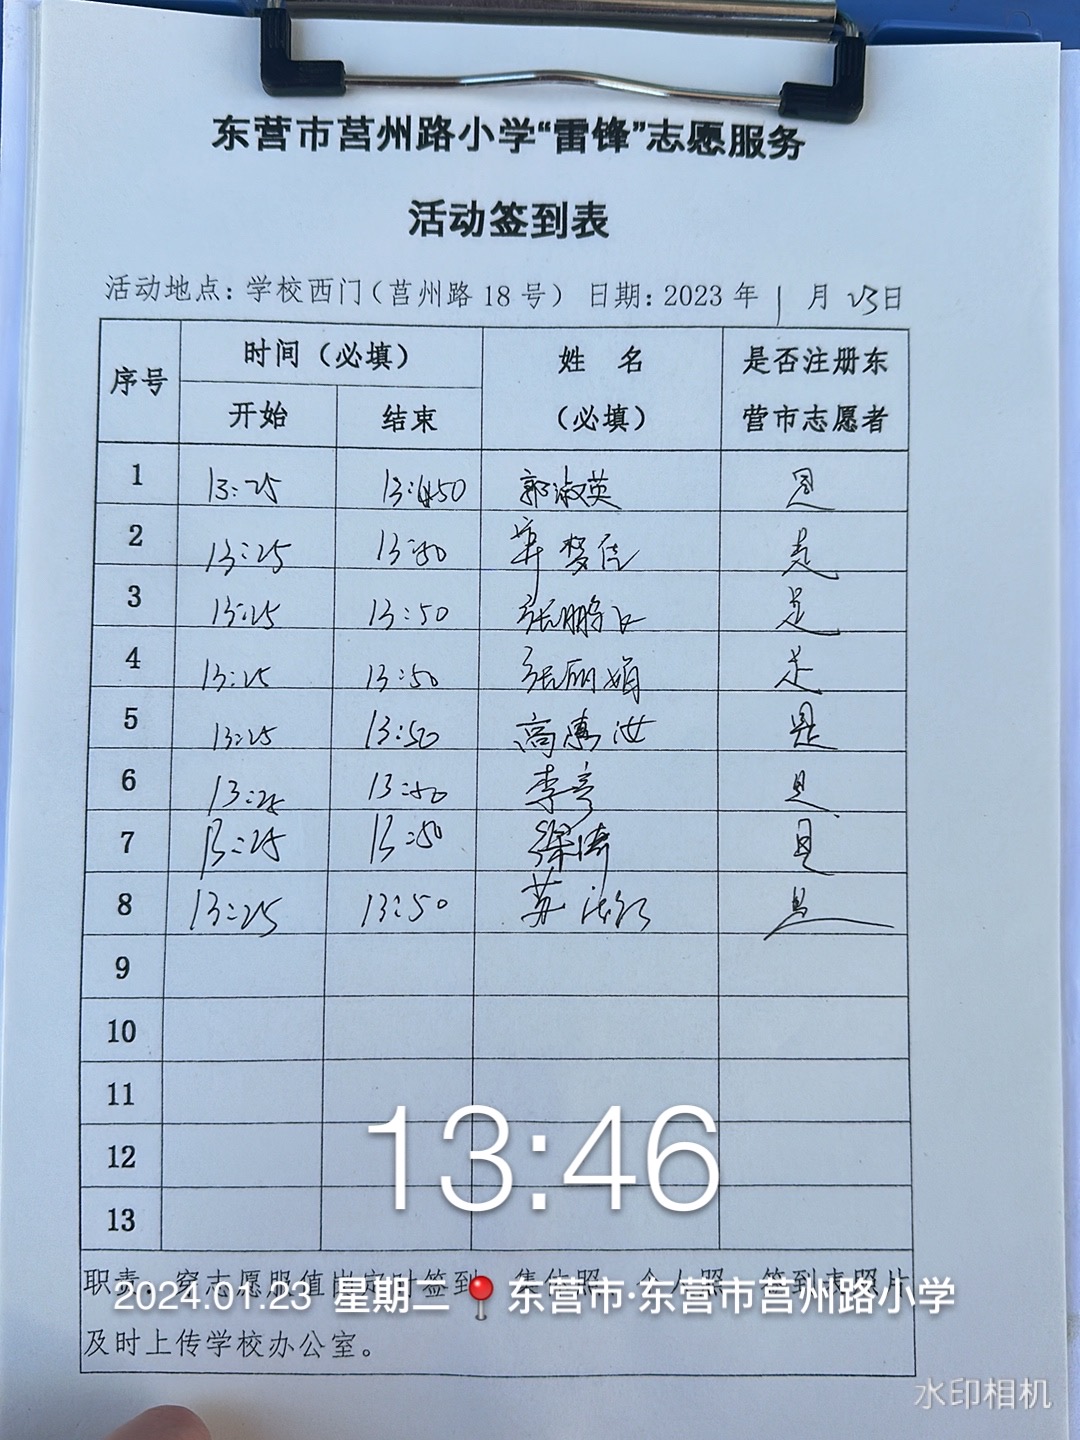 东营市莒州路小学“雷锋”志愿服务
活动签到表
活动地点：学校西门（莒州路 18 号） 日期：2023 年 1 月 23日
序号 时间（必填） 姓 名 （必填） 是否注册东营市志愿者
开始 结束
1 13:25 13:50 郭淑英 是
2 13:25 13:50 梦佳 是
3 13:25 13:50 张鹏 是
4 13:25 13:50 张丽娟 是
5 13:25 13:50 高惠汝 是
6 13:25 13:50 李 是
7 13:25 13:50 徐涛 是
8 13:25 13:50 苏 是
9
10
11
12
13
13:46
职责：穿志愿服值岗定时签到 集体照 个人照 签到表照片
2024.01.23 星期二 东营市·东营市莒州路小学
及时上传学校办公室。
水印相机